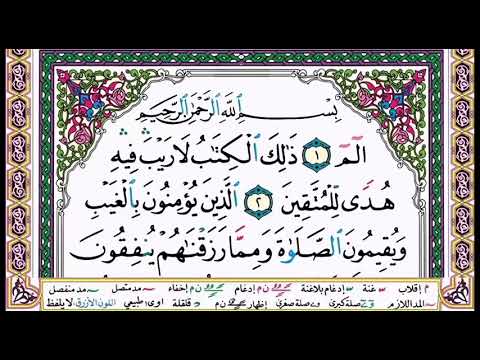 بِسْمِ ٱللَّهِ ٱلرَّحْمَٰنِ ٱلرَّحِيمِ
الٓمٓ ١ ذَٰلِكَ ٱلْكِتَٰبُ لَا رَيْبَ ۛ فِيهِ ۛ
هُدًى لِّلْمُتَّقِينَ ٢ ٱلَّذِينَ يُؤْمِنُونَ بِٱلْغَيْبِ
وَيُقِيمُونَ ٱلصَّلَوٰةَ وَمِمَّا رَزَقْنَٰهُمْ يُنفِقُونَ
م إقلاب غنة إدغام بلاغنة إدغام ن م إخفاء مد متصل مد منفصل
المد اللازم صلة كبرى صلة صغرى إظهار ن م قلقلة اوى طبيعي اللون الأزرق لا يلفظ